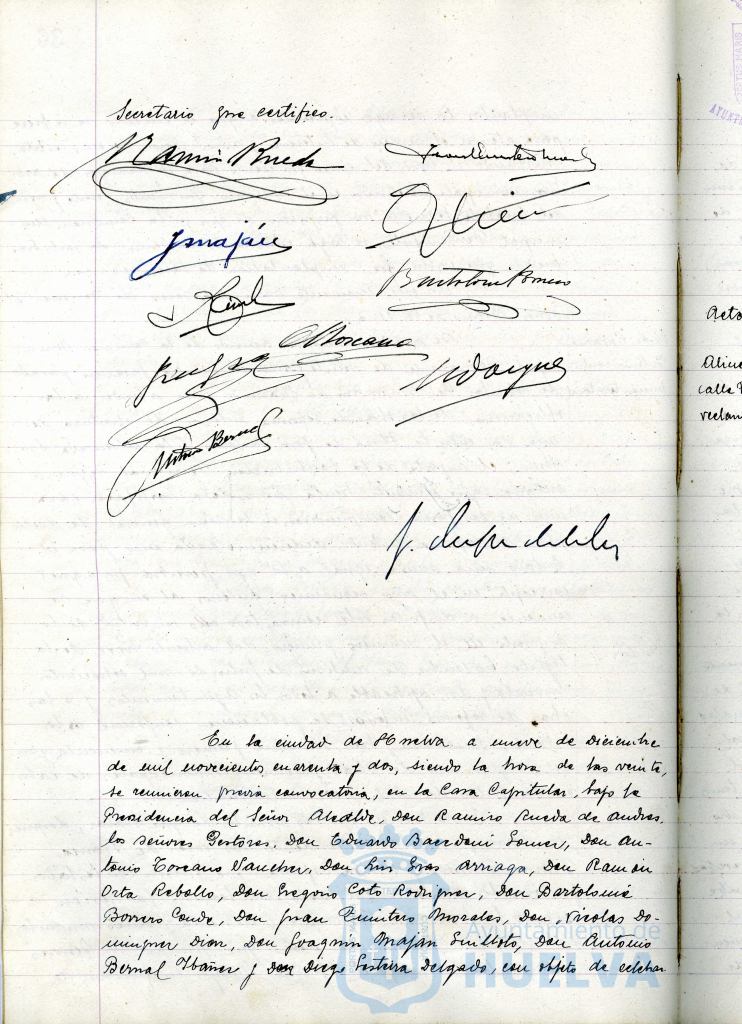 Secretario que certifico.
Ramiro Rueda
Jmaján
Bartolomé Borrero
A Toscano
NDomgue
Antonio Bernal
En la ciudad de Huelva a nueve de Diciembre
de mil novecientos cuarenta y dos, siendo la hora de las veinte,
se reunieron previa convocatoria, en la Casa Capitular, bajo la
Presidencia del Señor Alcalde, Don Ramiro Rueda de Andres,
los señores Gestores, Don Eduardo Gomez, Don An-
tonio Toscano Sanchez, Don Luis Gras Arriaga, Don Ramon
Orta Rebollo, Don Gregorio Coto Rodriguez, Don Bartolomé
Borrero Conde, Don Juan Quintero Morales, Don Nicolas Do-
minguez Dian, Don Joaquin Maján Guilloto, Don Antonio
Bernal Ibañez y Don Diego Delgado, con objeto de celebrar
Ayuntamiento de
HUELVA
Acta
calle
reclam